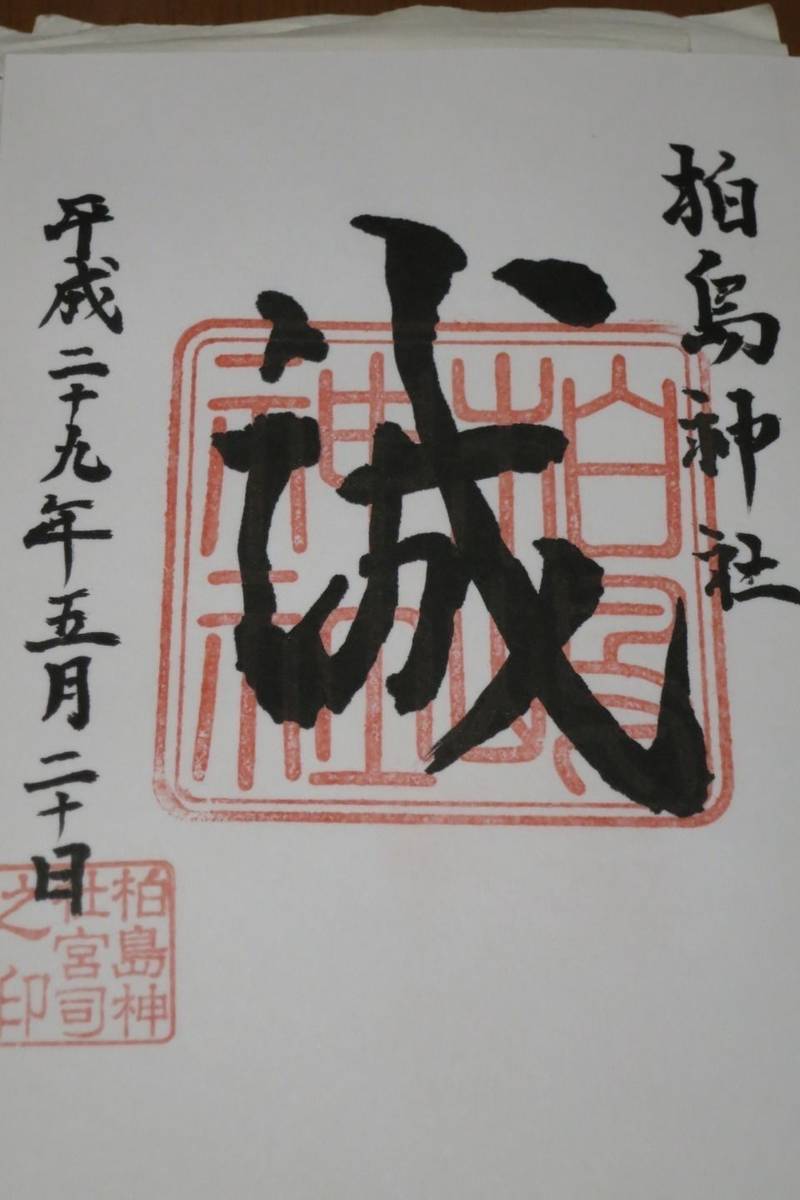 柏島神社
誠
柏島神社
平成二十九年五月二十日
柏島神
社宮司
之印